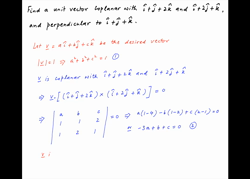 Find a unit vector coplanar with î+ĵ+2k̂ and î+2ĵ+k̂,
and perpendicular to î+ĵ+k̂.
Let r = aî+bĵ+ck̂ be the desired vector
|r|=1 ⇒ a²+b²+c²=1 ①
r is coplanar with î+ĵ+2k̂ and î+2ĵ+k̂
⇒ r.[(î+ĵ+2k̂)×(î+2ĵ+k̂)]=0
⇒ |a b c; 1 1 2; 1 2 1| =0 ⇒ a(1-4)-b(1-2)+c(2-1)=0
or -3a+b+c=0 ②
r.